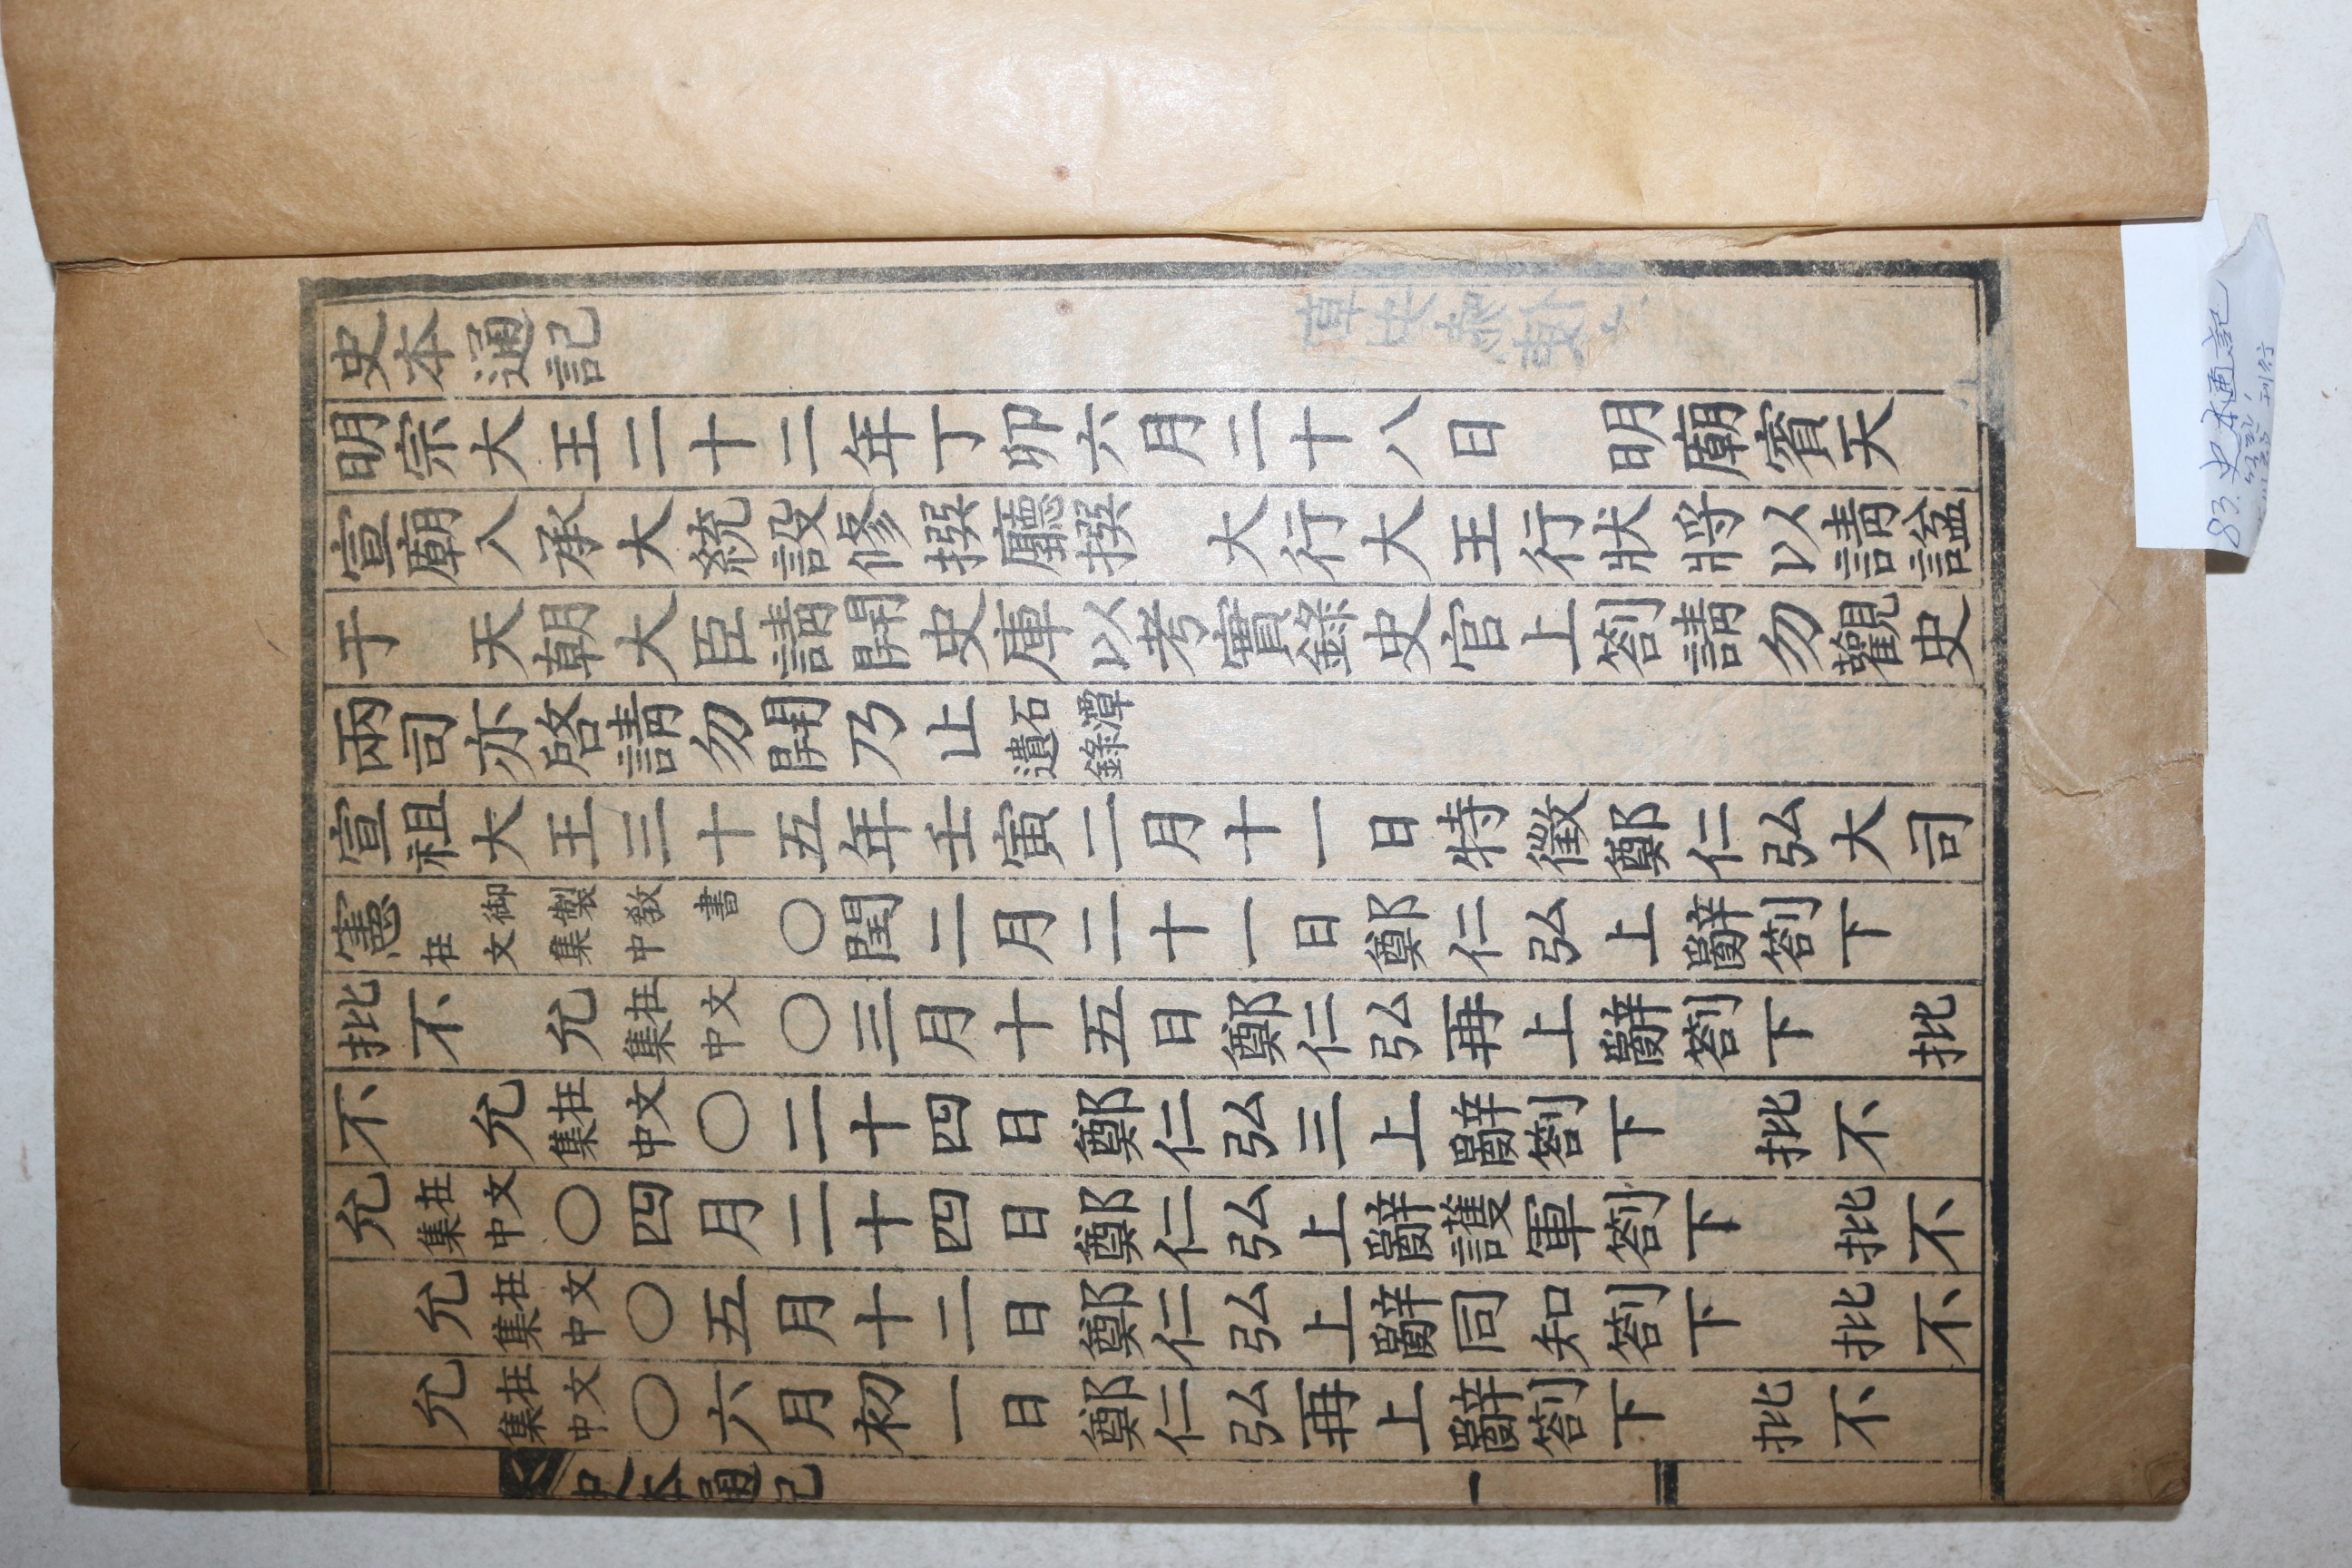 史本通記
明宗大王二十二年丁卯六月二十八日 明廟賓天
宣廟入承大統設修撰廳撰 大行大王行狀將以請諡
于 天朝大臣請開史庫以考實錄史官上箚請勿觀史
兩司亦啓請勿開乃止石潭遺錄
宣祖大王三十五年壬寅二月十一日特徵鄭仁弘大司
憲御製敎書在文集中〇閏二月二十一日鄭仁弘上辭箚下
批不 允在文集中〇三月十五日鄭仁弘再上辭箚下 批
不 允在文集中〇二十四日鄭仁弘三上辭箚下 批不
允在文集中〇四月二十四日鄭仁弘上辭護軍箚下 批不
允在文集中〇五月十二日鄭仁弘上辭同知箚下 批不
允在文集中〇六月初一日鄭仁弘再上辭箚下 批不
史本通記
一
83. 史本通記
刊行